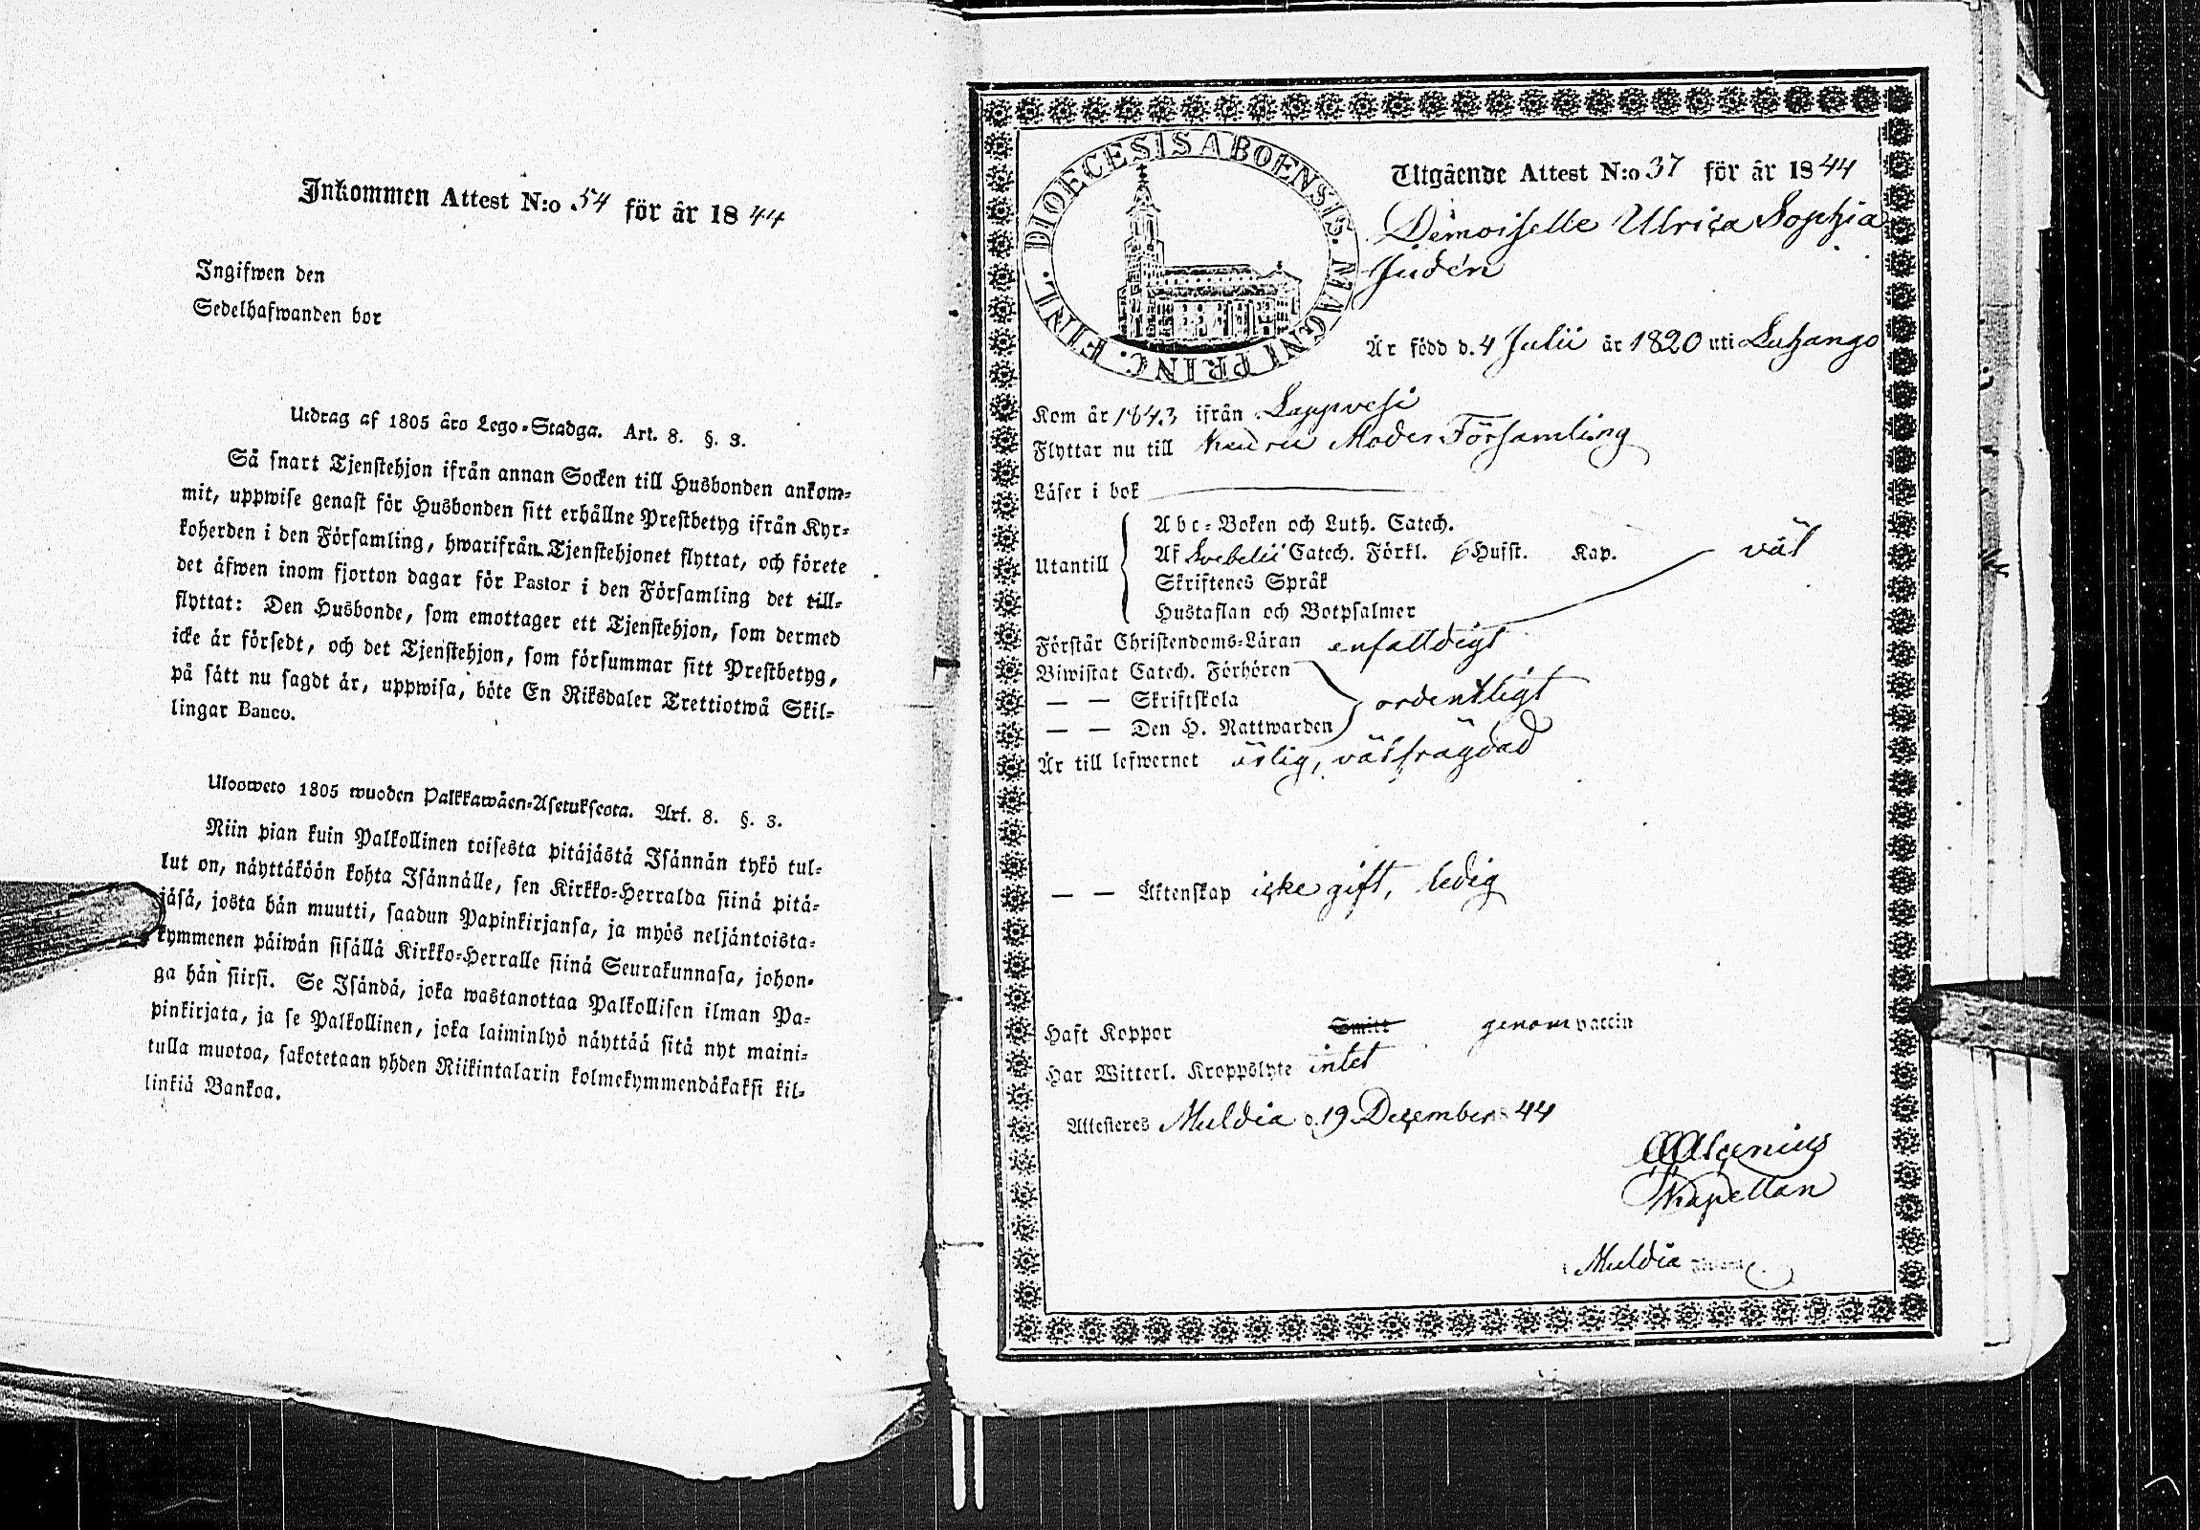 Inkommen Attest N:o 54 för år 1844
Ingifwen den
Sedelhafwanden bor
Utdrag af 1805 års Lego-Stadga. Art. 8. §. 3.
Så snart Tjenstehjon ifrån annan Socken till Husbonden ankom-
mit, uppwise genast för Husbonden sitt erhållne Prestbetyg ifrån Kyr-
koherden i den Församling, hwarifrån Tjenstehjonet flyttat, och förete
det äfwen inom fjorton dagar för Pastor i den Församling det till-
flyttat: Den Husbonde, som emottager ett Tjenstehjon, som dermed
icke är försedt, och det Tjenstehjon, som försummar sitt Prestbetyg,
på sätt nu sagdt är, uppwisa, böte En Riksdaler Trettiotwå Skil-
lingar Banco.
Ulosweto 1805 wuoden Palkkawäen-Asetuksesta. Art. 8. §. 3.
Niin pian kuin Palkollinen toisesta pitäjästä Isännän tykö tul-
lut on, näyttäköön kohta Isännälle, sen Kirkko-Herralda siinä pitä-
jäsä, josta hän muutti, saadun Papinkirjansa, ja myös neljäntoista-
kymmenen päiwän sisällä Kirkko-Herralle siinä Seurakunnasa, johon-
ga hän siirsi. Se Isändä, joka wastanottaa Palkollisen ilman Pa-
pinkirjata, ja se Palkollinen, joka laiminlyö näyttää sitä nyt maini-
tulla muotoa, sakotetaan yhden Riikintalarin kolmekymmendäkaksi kil-
linkiä Bankoa.
DIOECESIS ABOENSIS. MAGNI PRINC. FINL.
Utgående Attest N:o 37 för år 1844
Demoiselle Ulrica Sophia
Judén
Är född d. 4 Julii år 1820 uti Luhango
Kom år 1843 ifrån Lappvesi
Flyttar nu till Keuru Moder Församling
Läser i bok
Abc-Boken och Luth. Catech.
Utantill Af Svebelii Catech. Förkl. 6 Hufst. Kap. väl
Skriftenes Språk
Hustaflan och Botpsalmer
Förstår Christendoms-Läran enfalldigt
Biwistat Catech. Förhören
— — Skriftskola ordentligt
— — Den H. Nattwarden
Är till lefwernet ärlig, välfrägdad
— — Äktenskap icke gift, ledig
Haft Koppor Smitt genom vaccin
Har Witterl. Kroppslyte intet
Attesteres Muldia d. 19 December 1844
Kapellan
i Muldia